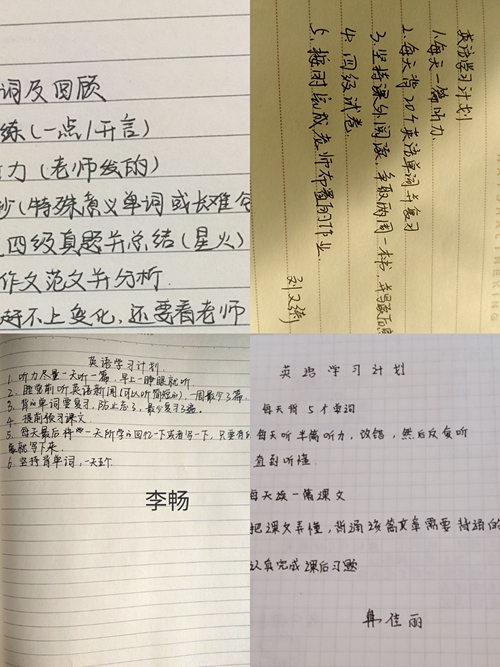 词及回顾
练(一点/开言)
力(老师发的)
(特殊意义单词或长难句
四级真题并总结(星火)
作文范文并分析.
赶不上变化,还要看老师
英语学习计划
1.每天一篇听力.
2.每天背20个英语单词并复习
3.坚持课外阅读.争取两周一本书,并写读后感
4.四级试卷.
5.按时完成老师布置的作业.
英语学习计划
1.听力尽量一天听一篇,早上一睁眼就听.
2.睡觉前听英语新闻(可以听简短的),一周最少3篇.
3.背的单词要复习,防止忘了,最少复习3遍.
4.提前预习课文
5.每天最后 一天所学的回忆一下或者写一下,只要有
就写下来.
6.坚持背单词,一天5个.
李畅
英语学习计划
每天背5个单词
每天听半篇听力,改错,然后反复听
直到听懂.
每天读一篇课文
把课文弄懂,背诵该篇文章需要背诵的
认真完成课后习题
佳丽